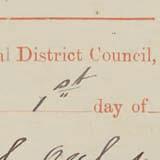 District Council,
1st day of